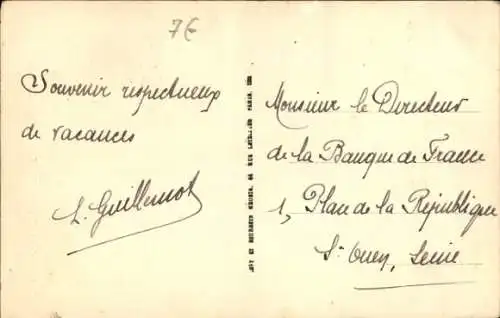 7€
Souvenir respectueux
de vacances
L. Guillemot
Monsieur le Directeur
de la Banque de France
1, Place de la République
St. Ouen, Seine